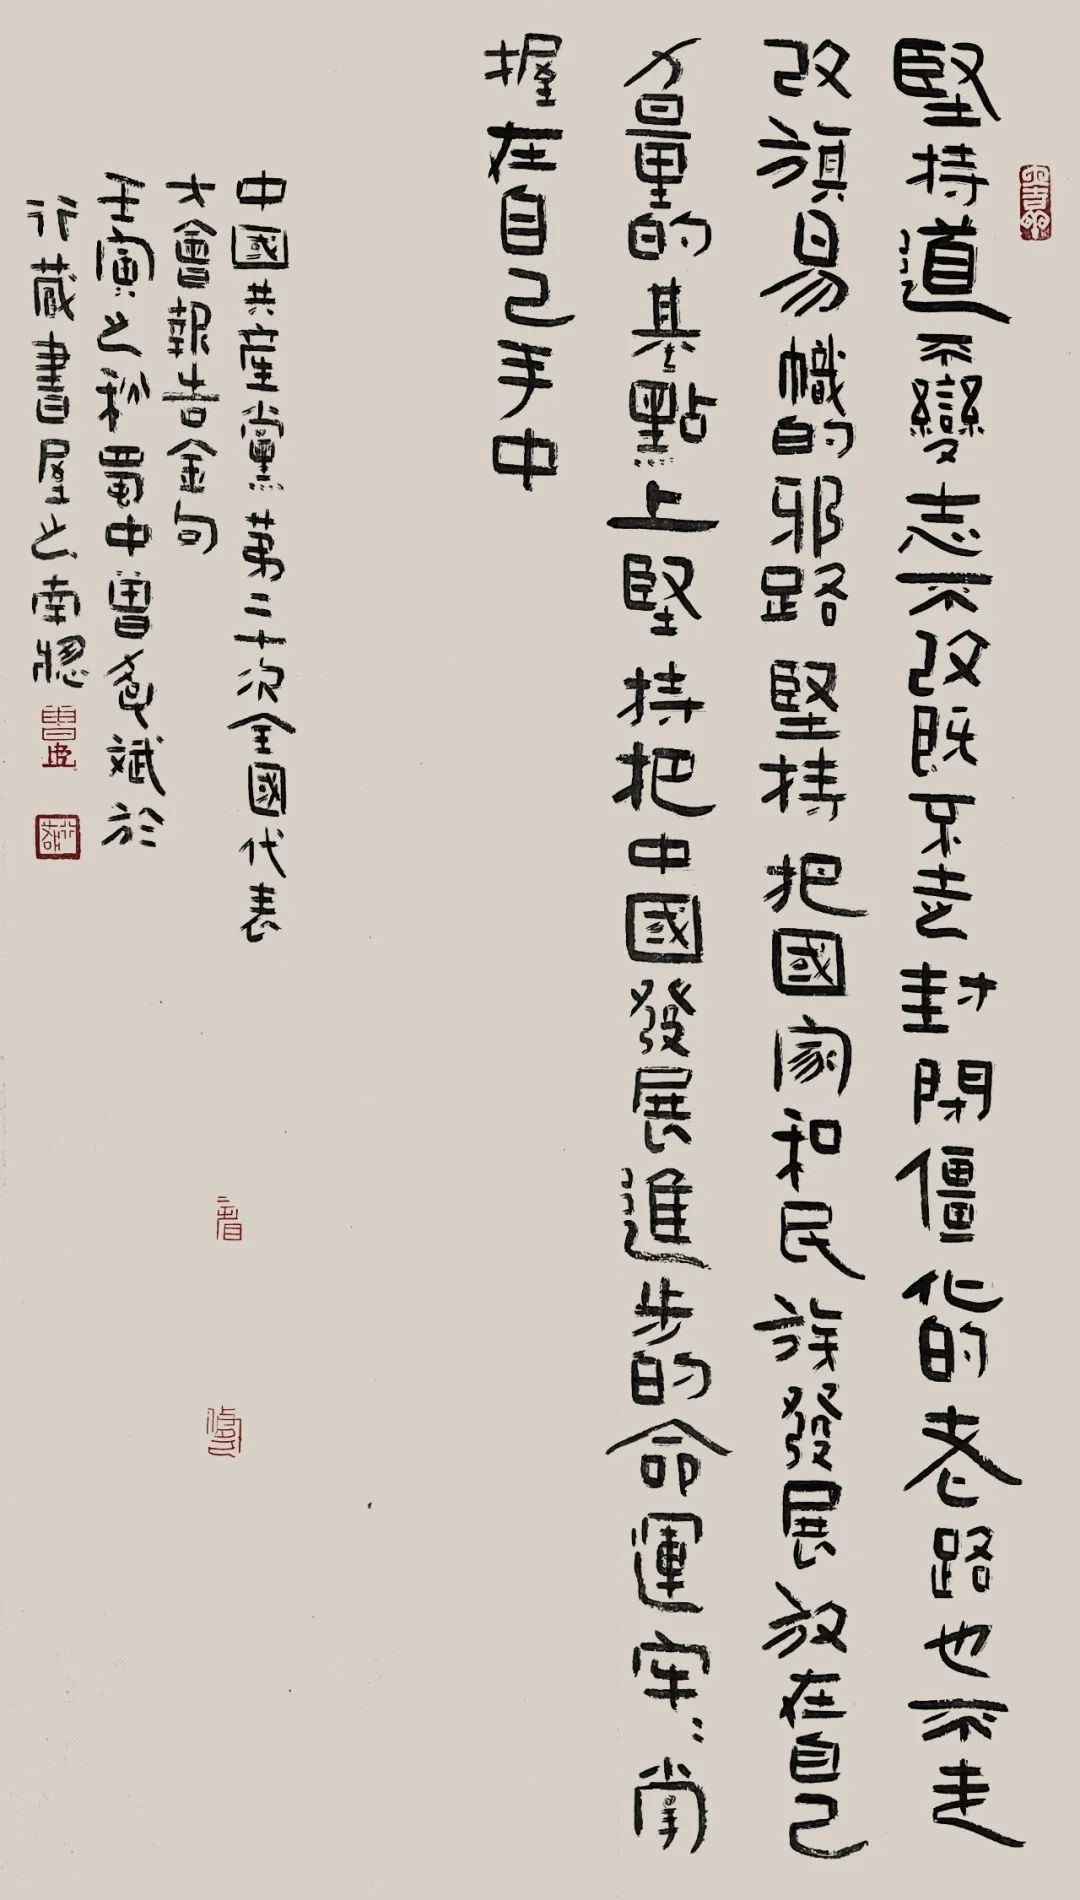 堅持道不變志不改既不走封閉僵化的老路也不走
改旗易幟的邪路堅持把國家和民族發展放在自己
力量的基點上堅持把中國發展進步的命運牢〻掌
握在自己手中
中國共産黨第二十次全國代表
大會報告金句
壬寅之秋蜀中曾 斌於
行藏書屋之南窗